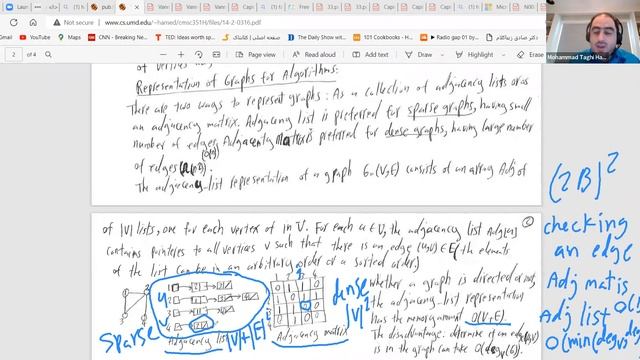 Not secure
www.cs.umd.edu/~hamed/cmsc351H/files/14-2-0316.pdf
TED: Ideas worth s...
101 Cookbooks - H...
Radio gap 01 by...
2 of 4
Mohammad Taghi Ha...
Representation of Graphs for Algorithms:
There are two ways to represent graphs: As a collection of adjacency lists or as
an adjacency matrix. Adjacency list is preferred for sparse graphs, having small
number of edges. Adjacency matrix is preferred for dense graphs, having large number
of edges
The adjacency-list representation of a graph G=(V,E) consists of an array Adj of
of |V| lists, one for each vertex of in V. For each u∈V, the adjacency list Adj[u]
contains pointers to all vertices v such that there is an edge (u,v)∈E (the elements
of the list can be in an arbitrary order or a sorted order.)
whether a graph is directed or not,
the adjacency-list representation
has the memory amount O(V+E).
The disadvantage: determine if an edge (u,v)
is in the graph can take
Adjacency list
|V|+|E|
Adjacency matrix
sparse
dense
|V|²
(2B)²
checking
an edge
Adj mat is
O(1)
Adj list
O(min(deg